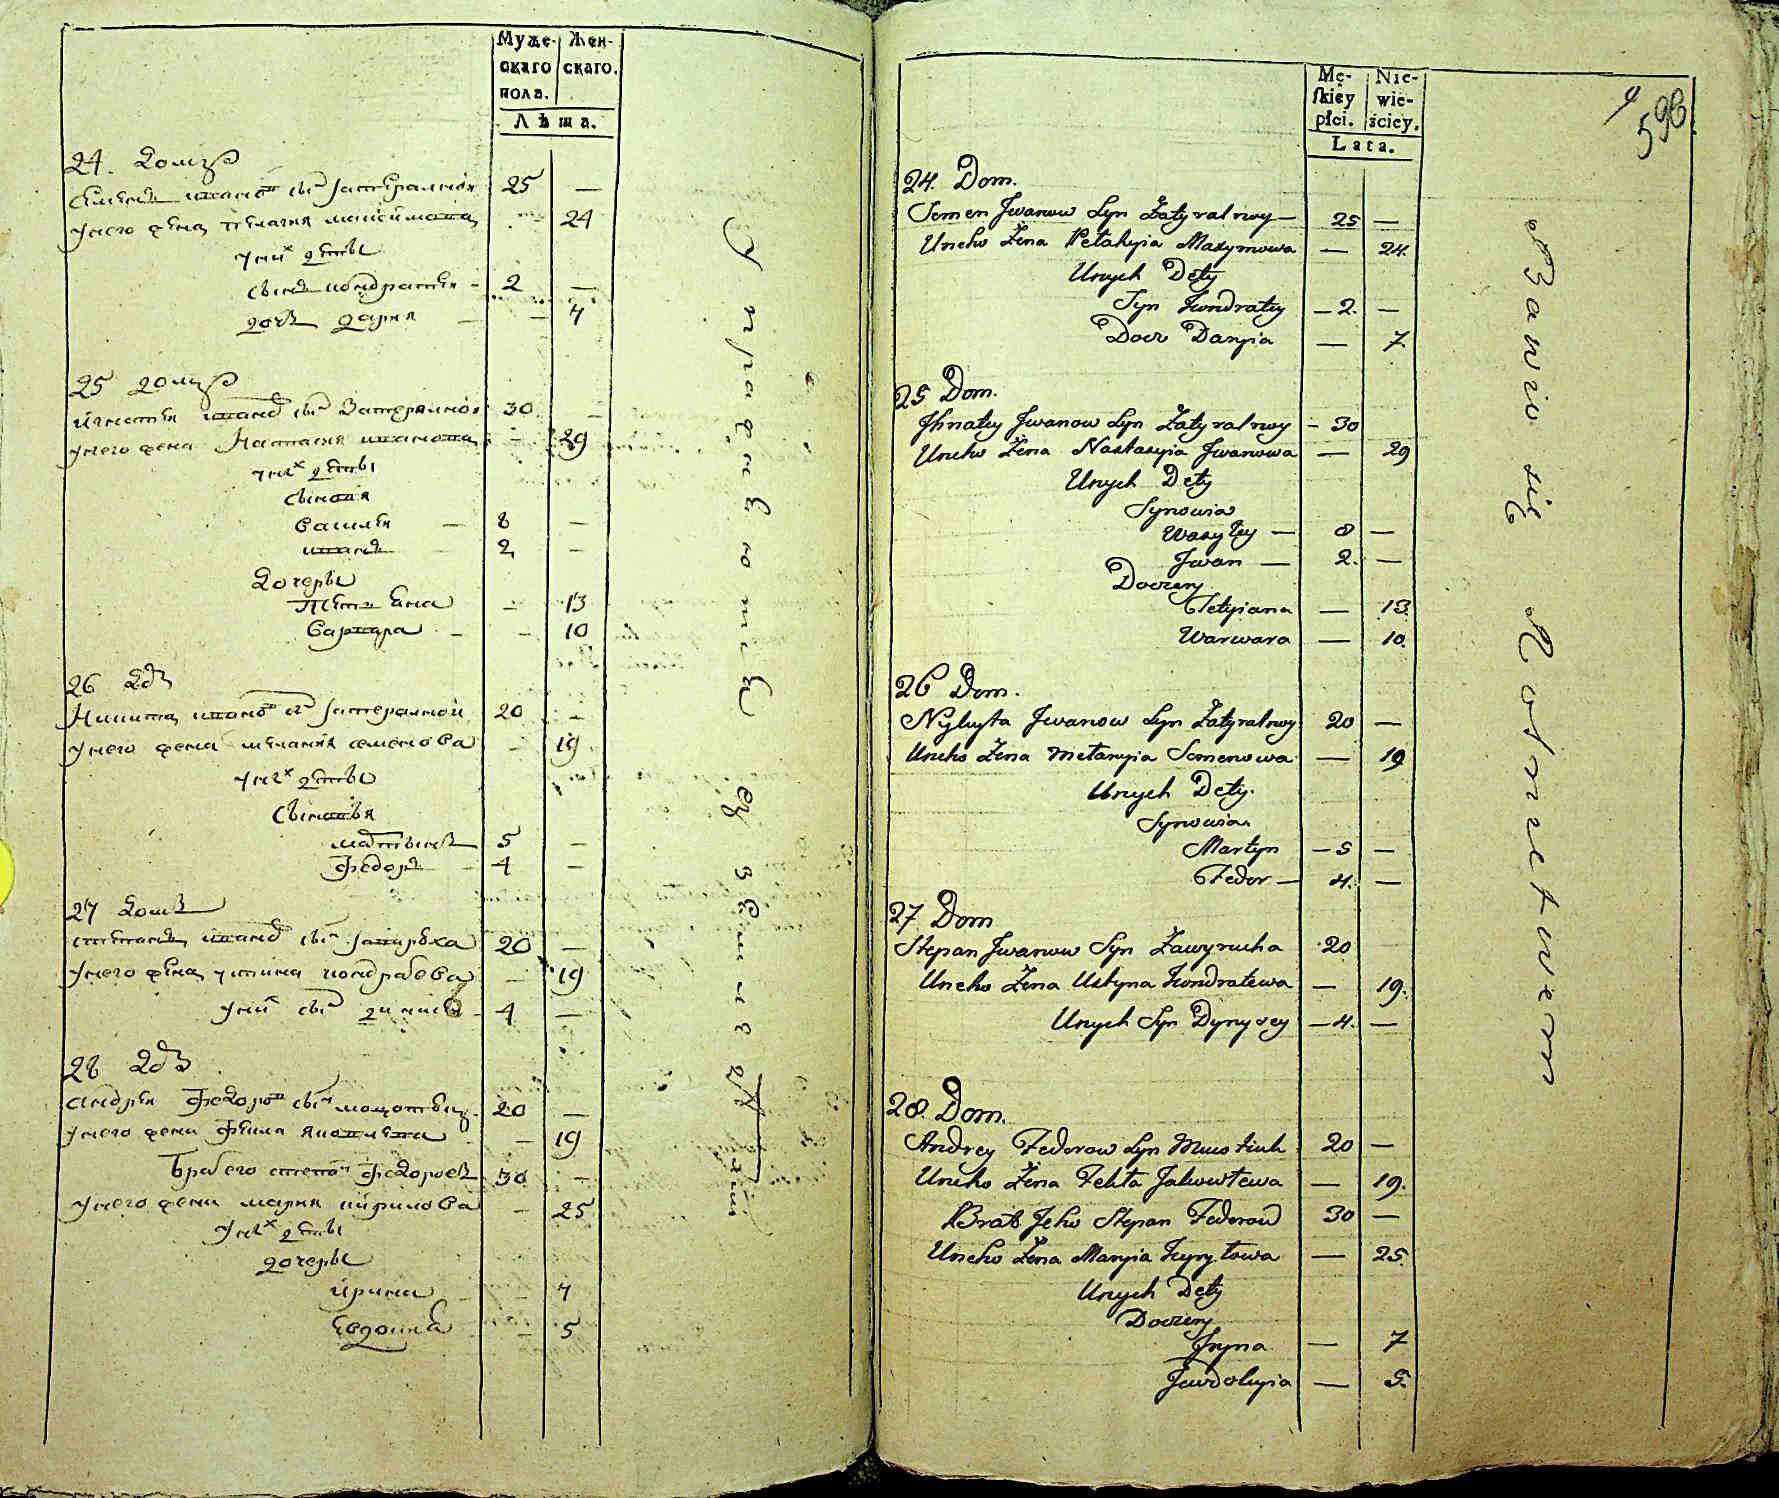 Муже-
скаго
пола.
Жен-
скаго.
Лѣта.
24. Домъ
Семенъ Иванов сын Затералной 25 —
У него жена Пелагия Максимова 24
У них дети
Сынъ Кондратий - 2 —
дочь Дария — — 7
25 домъ
Игнатий Иванов сын Затералной 30 —
У него жена Настасия Иванова — 29
У них дети
Сыновя
Василий — 8 —
Иванъ 2 —
Дочеры
Тетиана — 13
Варвара — — 10
26 Дом
Никита Иванов сын Затералной 20 —
У него жена Мелания Семенова — 19
У них дети
Сыновья
5 —
Федоръ — 4 —
27 Домъ
Степанъ Иванов сын Завируха 20 —
У него жена Устина Кондратева — 19
У них сын Динисий - 4 —
28 Дом
Андрей Федоров сын 20 —
У него жена Фекла Яковлева — 19
Брат его Степан Федоровъ 30 —
У него жена Мария Кирилова — 25
У них дети
дочеры
Ирина — — 7
Евдокия — 5
Упражняется
Mę-
skiey
płci.
Nie-
wie-
ściey.
Lata.
9
596
24. Dom.
Semen Jwanow Syn Zatyralnoy — 25 —
Uneho Żena Pełahyia Maxymowa — 24.
Unych Dety
Syn Kondratiy — 2. —
Docz Daryia — 7.
25 Dom.
Jhnatiy Jwanow Syn Zatyralnoy - 30
Uneho Żena Nastasyia Jwanowa — 29
Unych Dety
Synowia
Wasyłey — 8 —
Jwan — 2. —
Doczery
Tetyiana — 13.
Warwara — 10.
26 Dom.
Nykyta Jwanow Syn Zatyralnoy 20 —
Uneho Żena Mełanyia Semenowa — 19
Unych Dety.
Synowia.
Martyn — 5 —
Fedor — 4. —
27 Dom
Stepan Jwanow Syn Zawyrucha 20
Uneho Żena Ustyna Kondratewa — 19.
Unych Syn Dynysey — 4. —
28. Dom.
Andrey Fedorow Syn 20 —
Uneho Żena Fekła Jakowłewa — 19.
Brat Jeho Stepan Fedorow 30 —
Uneho Żena Maryia Kyryłowa — 25.
Unych Dety
Doczery
Jryna — 7
Jewdokyia — 5.
Bawio się Rolnictwem